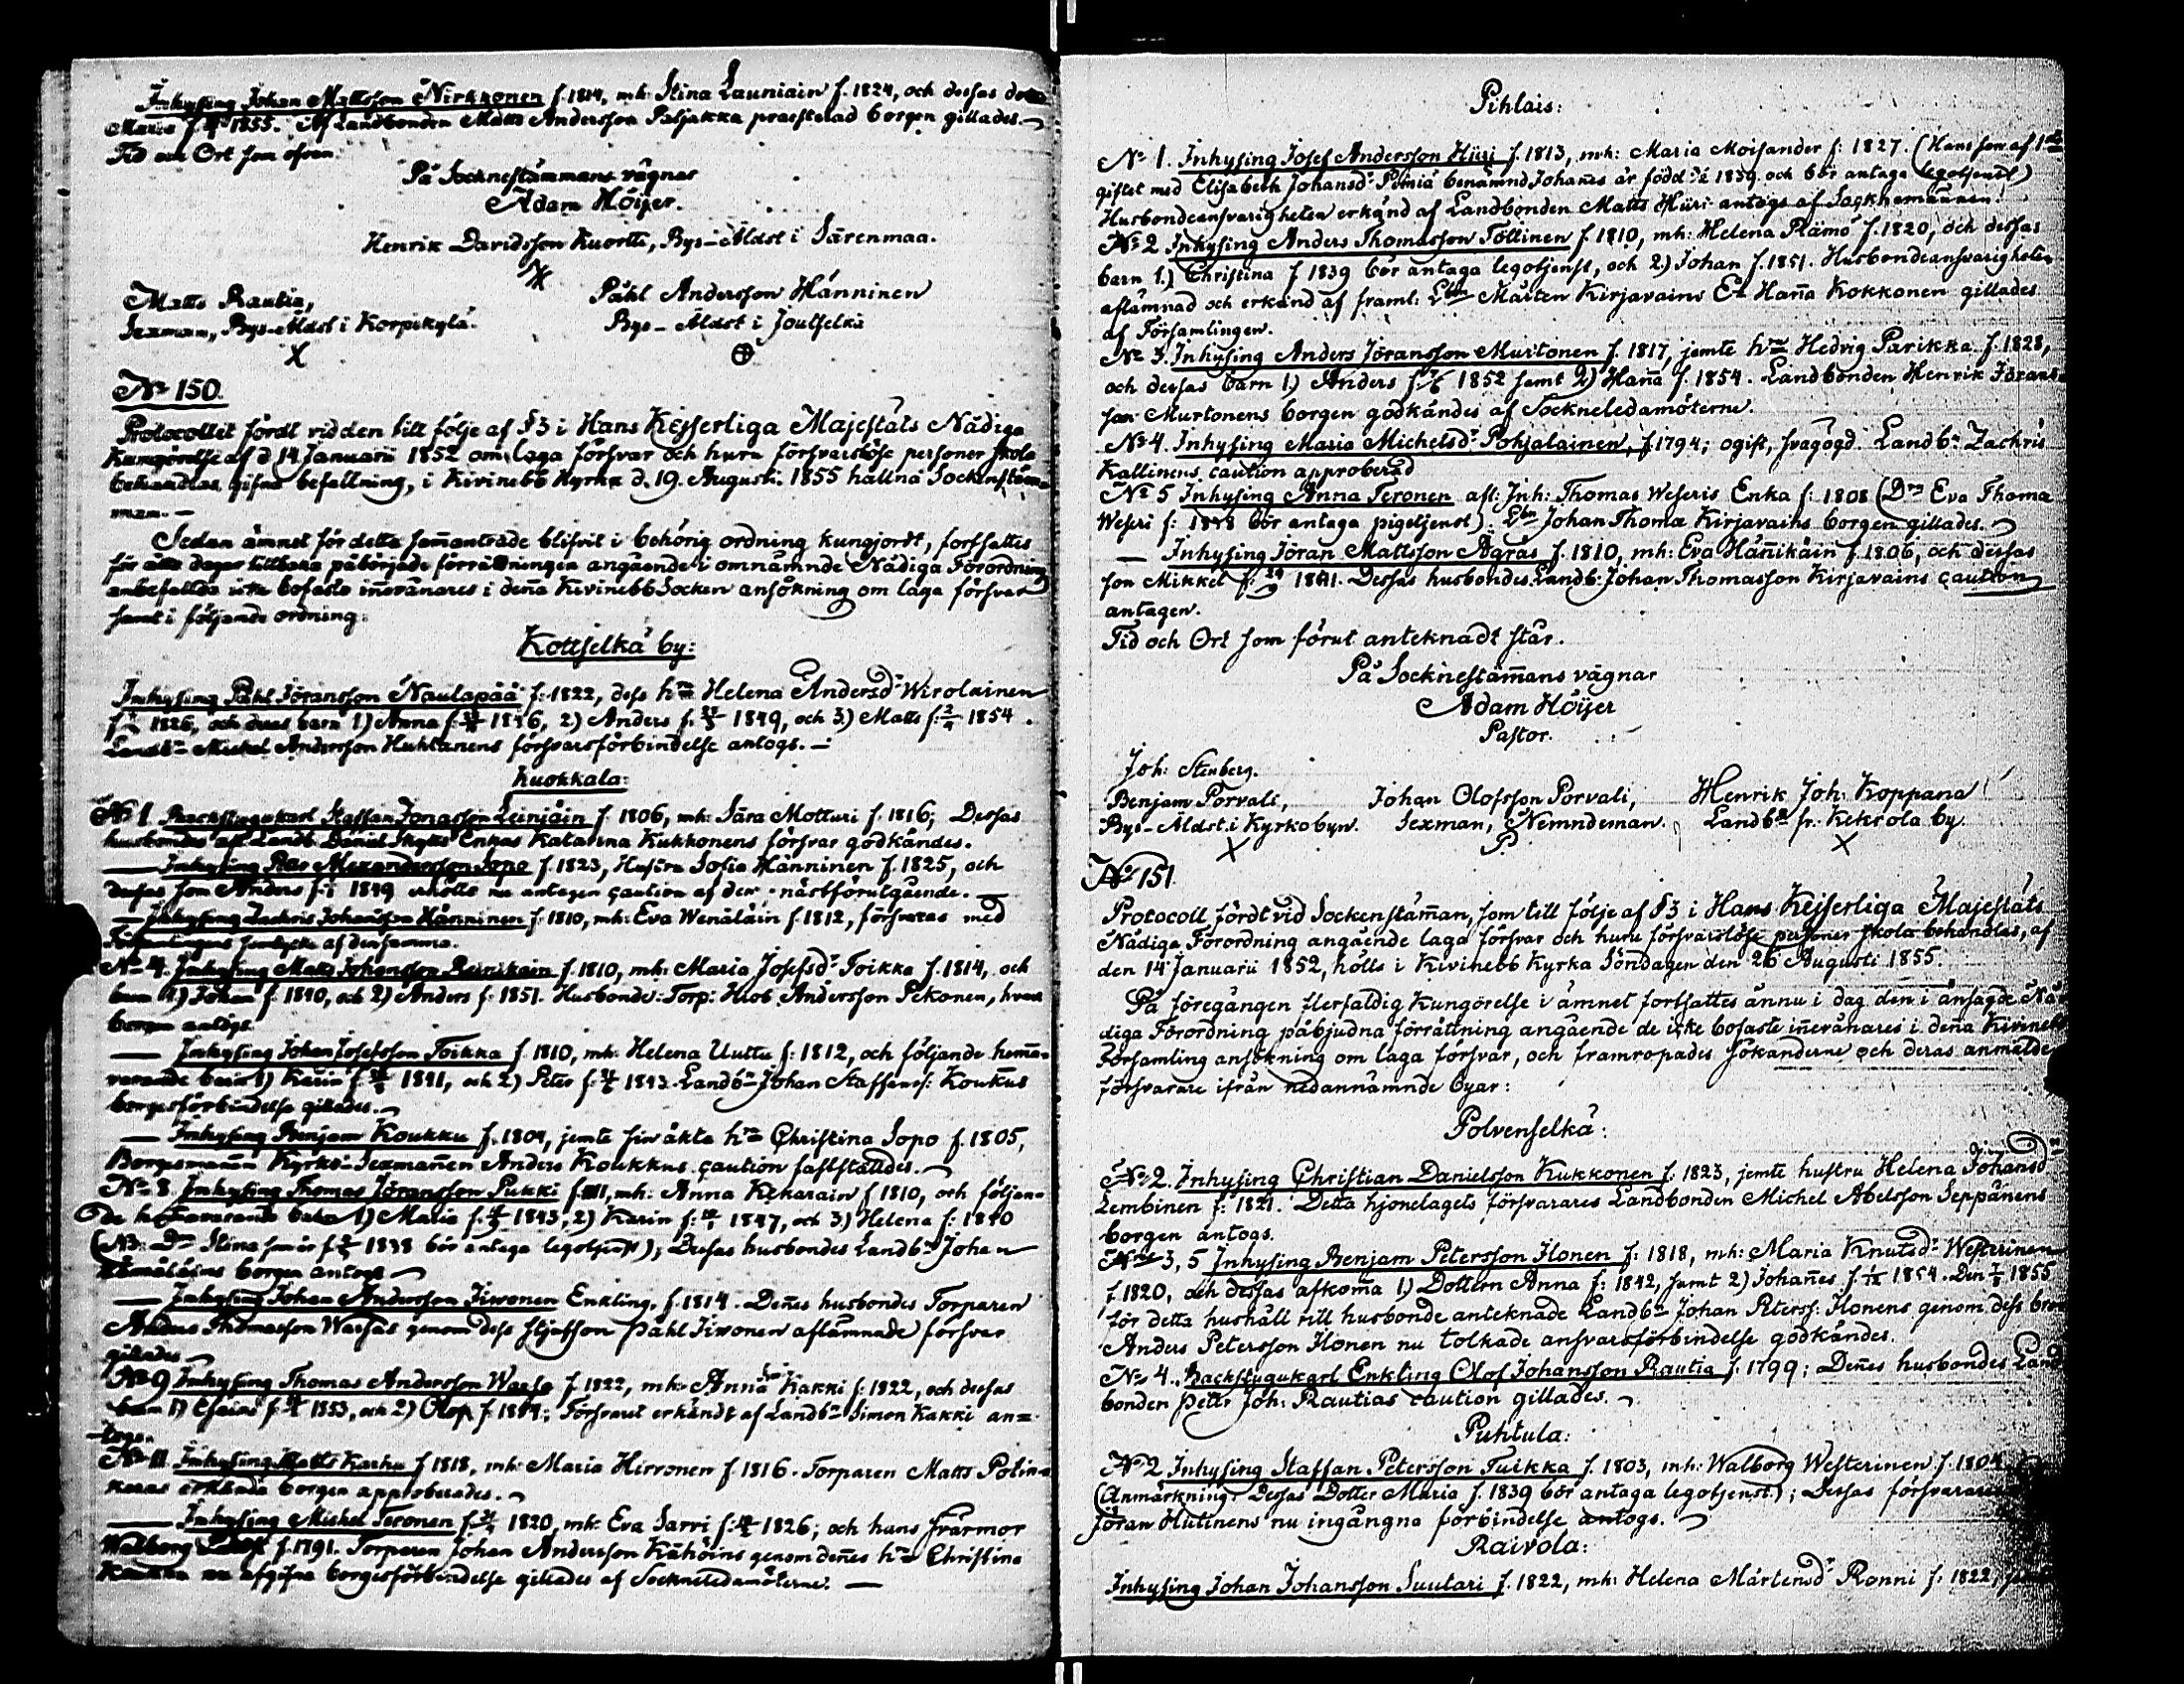 Inhysing Johan Mattsson Nirkkonen f. 1814, mh: Stina Launiain f. 1824, och dessas
Maria 1855. Af Landbonden Matts Andersson Paljakka praesterad borgen gillades.
Tid och Ort som ofvan.
På Socknestämmans vägnar
Adam Höijer.
Henrik Davidsson Kuortti, Bys-Äldst i Särenmaa.
Matts Rautia,
Sexman, Bys-Äldst i Korpikylä.
X
Påhl Andersson Hänninen
Bys-Äldst i Joutselkä
No 150.
Protocollet fördt vid den till följe af §3 i Hans Kejserliga Majestäts Nådiga
Kungörelse af d 14 Januarii 1852 om laga försvar och huru försvarslöse personer skola
behandlas, gifne befallning, i Kivinebb Kyrka d. 19. Augusti. 1855 hållna Sockenstäm-
man. —
Sedan ämnet för detta samanträde blifvit i behörig ordning kungjordt, fortsattes
för åtta dagar tillbaka påbörjade förrättningen angående i omnämnde Nådiga Förordning
anbefallda icke bofaste inevånares i dena Kivinebb Socken ansökning om laga försvar
samt i följande ordning:
Kottselkä by:
Inhysing Påhl Jöransson Naulapää f: 1822, dess hru Helena Andersdr Wirolainen
f 1826, och deras barn 1) Anna f: 1846, 2) Anders f. 1849, och 3) Matts f: 2/4 1854.
Landbn Michel Andersson Huhtanens försvarsförbindelse antogs. —
Kuokkala:
No 1. Backstugukarl Staffan Jonasson Leiniäin f. 1806, mh: Sara Motturi f. 1816; Dessas
husbondes afl. Landb. Daniel Enkas Katarina Kukkonens försvar godkändes.
— Inhysing Alexandersson Sopo f. 1823, Hustru Sofia Hänninen f. 1825, och
dessas son Anders f: 1849 nu antagen caution af den nästförutgående.
— Inhysing Zachris Johansson Hänninen f. 1810, mh: Eva Wenäläin f. 1812, försvaras med
Församlingens samtycke af densamma.
No 4. Inhysing Matts Johansson Reinikain f. 1810, mh: Maria Josefsdr Toikka f. 1814, och
barn 1) Johan f: 1840, och 2) Anders f: 1851. Husbonde: Torp: Hiob Andersson Pekonen, hvars
borgen antogs.
— Inhysing Johan Josefsson Toikka f. 1810, mh: Helena Uuttu f: 1812, och följande hema-
varande barn 1) Karin f. 1841, och 2) Peter f: 1843. Landbn Johan Staffanss: Koukkus
borgesförbindelse gillades.
— Inhysing Benjam Koukku f. 1804, jemte sin äkta hru Christina Sopo f. 1805,
Borgesmann Kyrko-Sexmanen Anders Koukkus caution fastställdes.
No 8. Inhysing Thomas Jöransson Pukki f. 1811, mh: Anna Kekarain f 1810, och följan-
de hemavarande barn 1) Maria f. 1843, 2) Karin f: 1847, och 3) Helena f: 1840
(NB: Dn Stina som är f. 1838 bör antaga legotjenst); Dessas husbondes Landbn Johan
Hämäläins borgen antogs
— Inhysing Johan Andersson Jivonen Enkling, f. 1814. Denes husbondes Torparen
Anders Thomasson Waesas genom dess stjufson Påhl Jivonen aflämnade försvar
gillades
No 9 Inhysing Thomas Andersson Waesa f 1822, mh: Anna Kakki f: 1822, och dessas
barn 1) Esaias f. 1853, och 2) Olop f. 1849; Försvaret erkändt af Landbn Simon Kakki an-
togs.
No 11 Inhysing Matts Karhu f 1818, mh: Maria Hirvonen f. 1816. Torparen Matts Potin-
karas erkända borgen approberades.
— Inhysing Michel Teronen f. 1820, mh: Eva Sarvi f: 1826; och hans svärmor
Walborg f. 1791. Torparen Johan Andersson Kähöins genom denes hru Christina
nu afgifna borgesförbindelse gillades af Sockneledamöterne. —
Pihlais:
No 1. Inhysing Josef Andersson Hüri f. 1813, mh: Maria Moisander f: 1827. (Hans son af 1sta
giftet med Elisabeth Johansdr Poiniä benämnd Johanes är född 1839. och bör antaga legotjenst)
Husbondeansvarigheten erkänd af Landbonden Matts Hüri antogs af Sagknemännen.
No 2 Inhysing Anders Thomasson Töllinen f. 1810, mh: Helena Rämö f. 1820, och dessas
barn 1.) Christina f 1839 bör antaga legotjenst, och 2.) Johan f. 1851. Husbondeansvarigheten
aflämnad och erkänd af framl: Lbn Mårten Kirjavains Ea Hana Kokkonen gillades
af Församlingen.
No 3. Inhysing Anders Jöransson Murtonen f. 1817, jemte hru Hedvig Parikka f. 1828,
och dessas barn 1.) Anders f. 7/6 1852 samt 2) Hana f. 1854. Landbonden Henrik Jörans-
son Murtonens borgen godkändes af Sockneledamöterne.
No 4. Inhysing Maria Michelsdr Pohjalainen, f. 1794; ogift, svagögd. Landbn Zachris
Kallinens caution approberad
No 5 Inhysing Anna Teronen afl: Inh: Thomas Weseris Enka f: 1808 (Drn Eva Thoma
Weseri f: 1838 bör antaga pigetjenst). Lbn Johan Thomæ Kirjavains borgen gillades.
— Inhysing Jöran Mattsson Ägräs f. 1810, mh: Eva Hänikäin f. 1806, och dessas
son Mikkel f. 29/9 1841. Dessas husbondes Landb: Johan Thomasson Kirjavains caution
antagen.
Tid och Ort som förut anteknadt står.
På Socknestämans vägnar
Adam Höijer
Pastor.
Joh: Stenberg.
Benjam Porvali,
Bys-Äldst. i Kyrkobyn.
X
Johan Olofsson Porvali,
Sexman, Nemndeman.
P
Henrik Joh: Koppana
Landbn fr. Kekrola by
X
No 151
Protocoll fördt vid Sockenstäman, som till följe af §3 i Hans Kejserliga Majestäts
Nådiga Förordning angående laga försvar och huru försvarslöse personer skola behandlas, af
den 14 Januarii 1852, hölls i Kivinebb Kyrka Söndagen den 26 Augusti 1855.
På föregången flerfaldig Kungörelse i ämnet fortsattes ännu i dag den i ånsagde Nå-
diga Förordning påbjudna förrättning angående de icke bofaste inevånares i dena Kivinebb
Församling ansökning om laga försvar, och framropades sökanderne och deras anmälde
försvarare ifrån nedannämnde byar:
Polvenselkä:
No 2. Inhysing Christian Danielsson Kukkonen f. 1823, jemte hustru Helena Johansdr
Lembinen f: 1821. Detta hjonelagets försvarares Landbonden Michel Abelsson Seppänens
borgen antogs.
No 3, 5 Inhysing Benjam Petersson Ilonen f: 1818, mh: Maria Knutsdr Westerinen
f. 1820, och dessas afkoma 1.) Dottern Anna f: 1842, samt 2) Johanes f. 1/12 1854. Den 1855
för detta hushåll till husbonde anteknade Landbn Johan Peterss: Ilonens genom dess bror
Anders Petersson Ilonen nu tolkade ansvarsförbindelse godkändes.
No 4. Backstugukarl Enkling Olof Johansson Rautia f. 1799; Denes husbondes Land-
bonden Petter Joh: Rautias caution gillades.
Puhtula:
No 2 Inhysing Staffan Petersson Tuikka f. 1803, mh: Walborg Westerinen f. 1804
(Anmärkning: Dessas Dotter Maria f. 1839 bör antaga legotjenst.); Dessas försvarares
Jöran Hutinens nu ingångna förbindelse antogs.
Raivola:
Inhysing Johan Johansson Suutari f. 1822, mh: Helena Mårtensdr Ronni f: 1822,